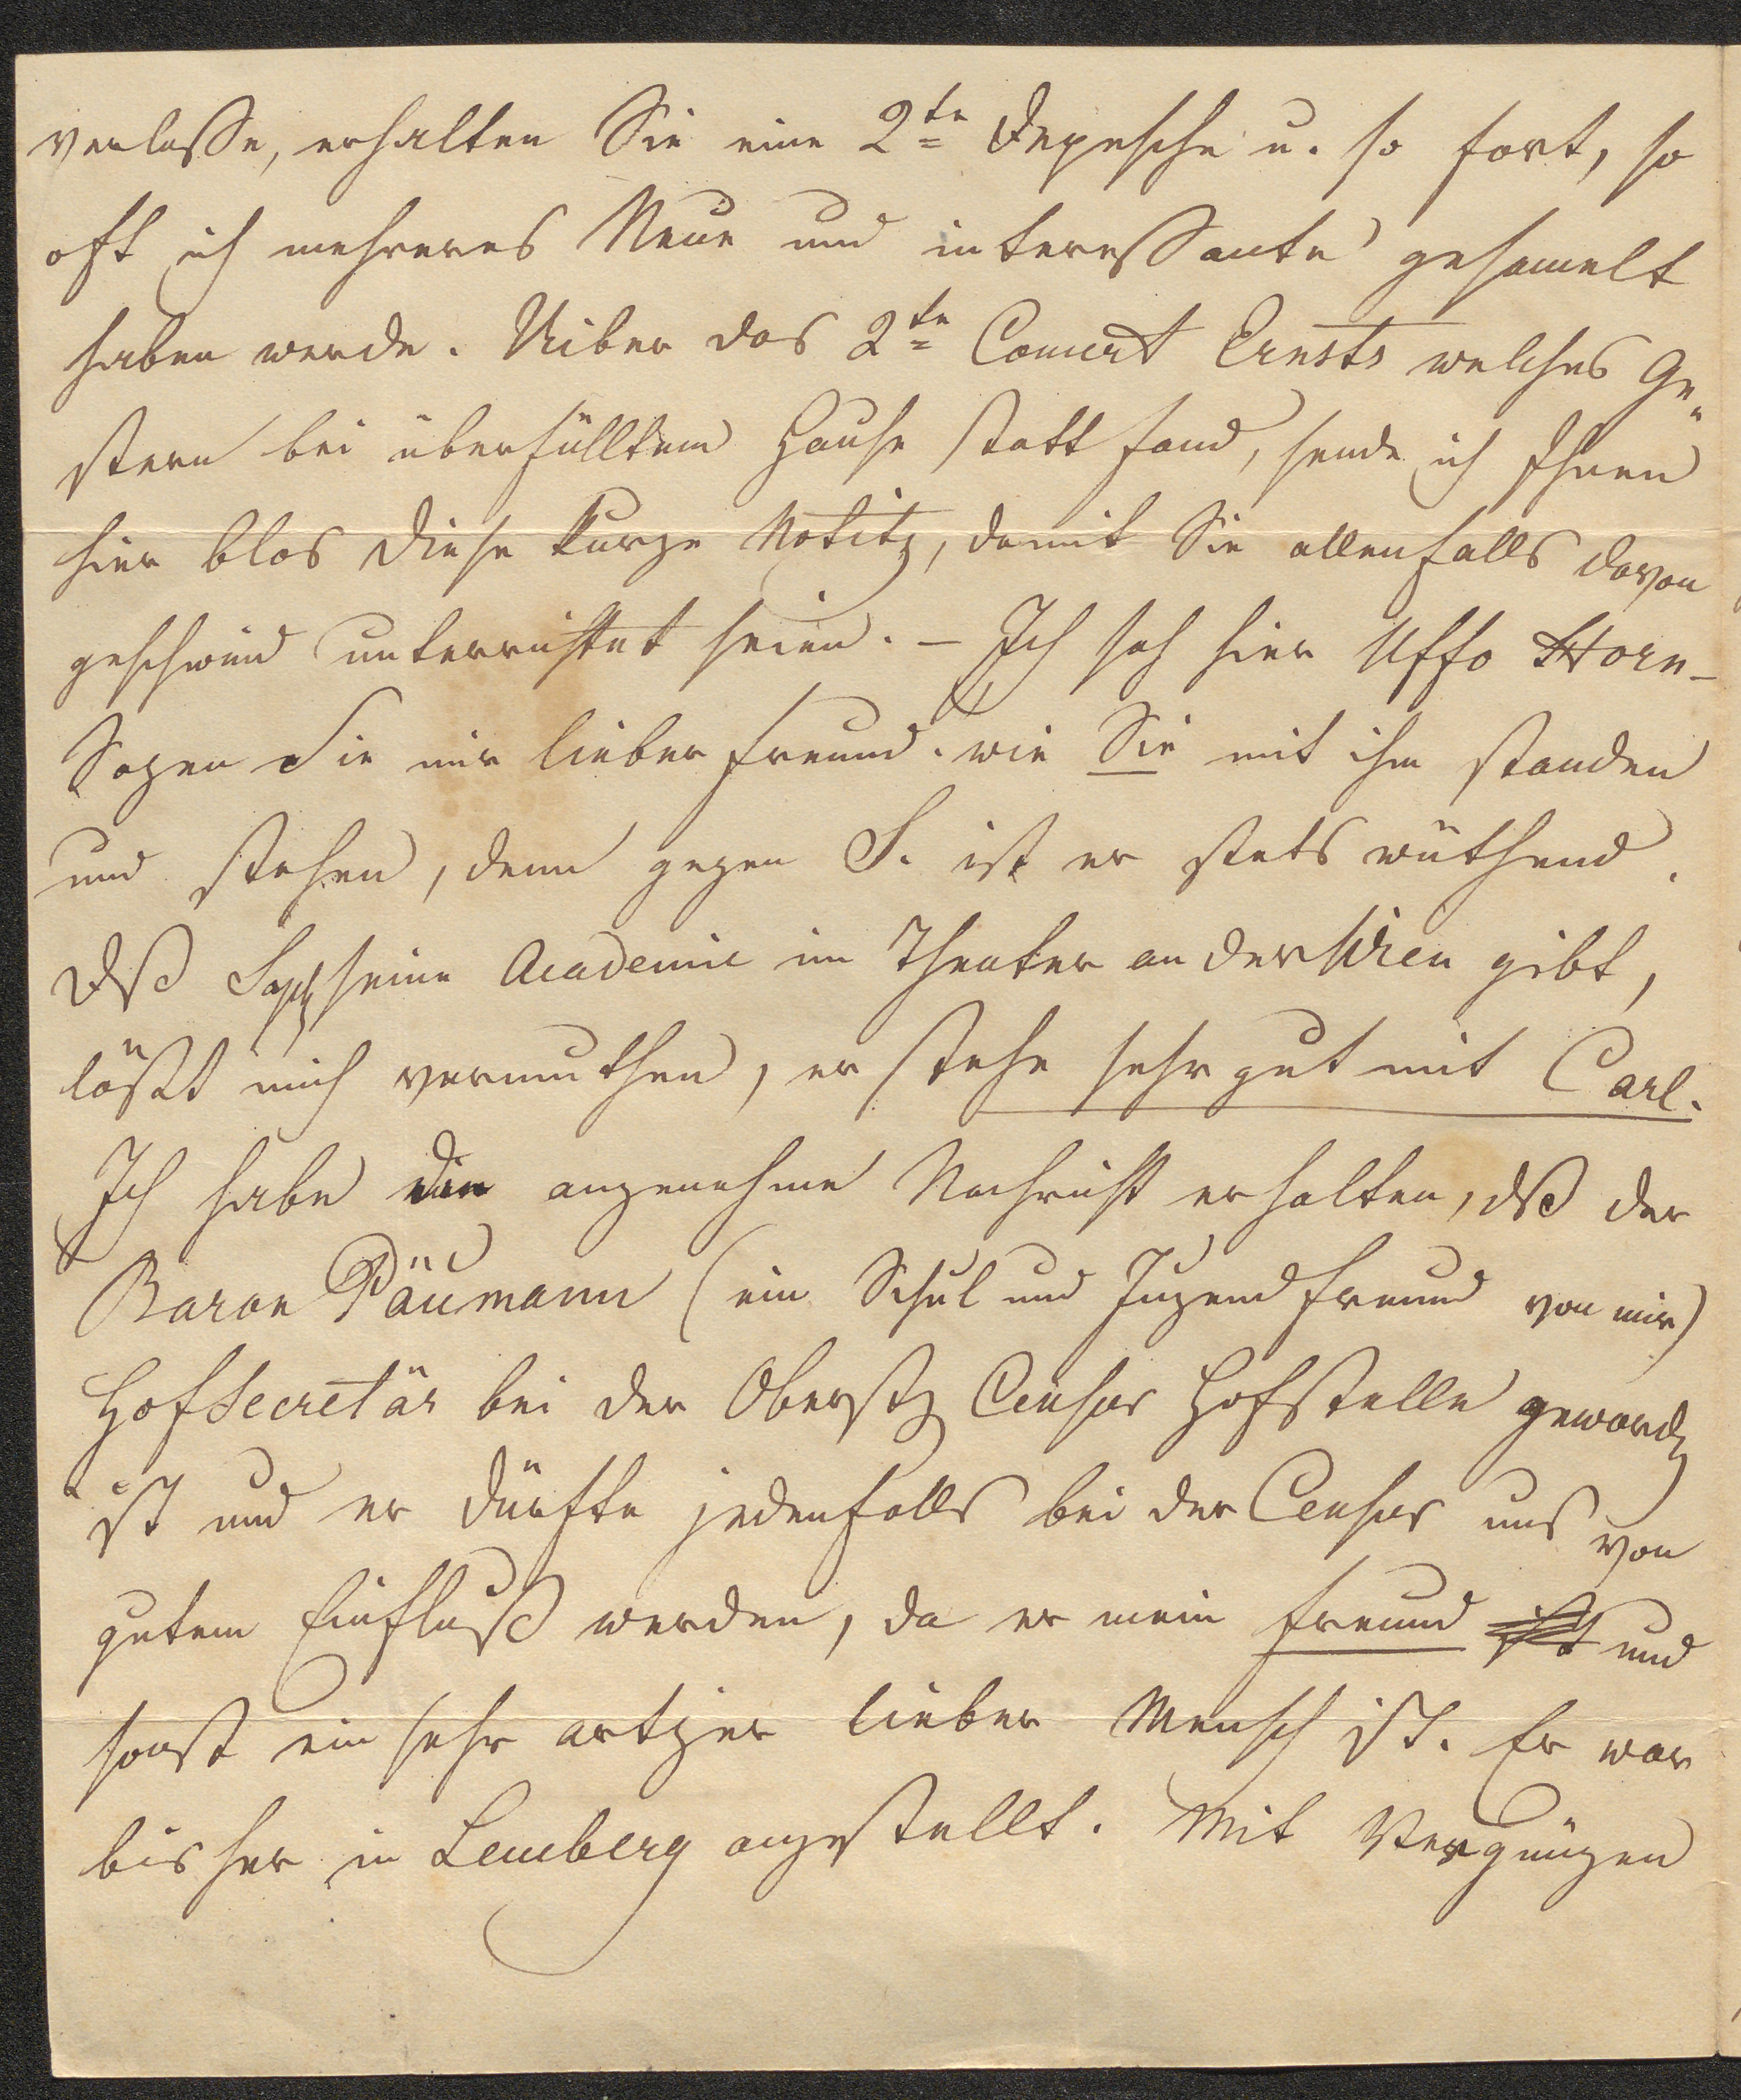 verlasse, erhalten Sie eine 2te Depesche u. so fort, so
oft ich mehreres Neue und interessante gesamelt
haben werde. Uiber das 2te Concert Ernsts welches Ge„
stern bei überfülltem Hause statt fand, sende ich Ihnen
hier blos diese kurze Notitz, damit Sie allenfalls davon
geschwind unterrichtet seien. – Ich sah hier Uffo Horn –
Sagen Sie mir lieber Freund. wie Sie mit ihm standen
und stehen, denn gegen S. ist er stets wüthend.
Dß Saph seine Academie im Theater an der Wien gibt,
läßt mich vermuthen, er stehe sehr gut mit Carl.
Ich habe die angenehme Nachricht erhalten, dß der
Baron Päumann (ein Schul und Jugendfreund von mir)
Hofsecretär bei der Oberstz Censur Hofstelle geword
ist und er dürfte jedenfalls bei der Censur uns von
gutem Einfluß werden, da er mein Freund ist und
sonst ein sehr artiger lieber Mensch ist. Er war
bisher in Lemberg angestellt. Mit Vergnügen